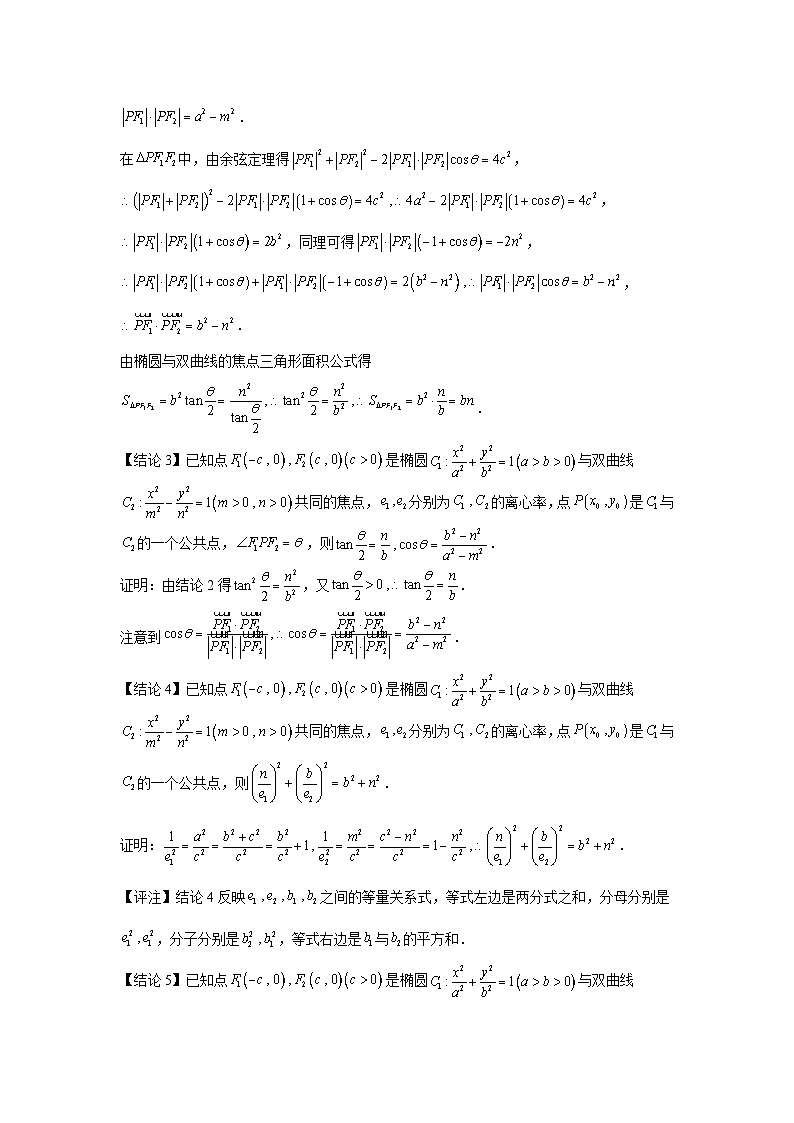 |PF₁|·|PF₂| = a² − m².
在ΔPF₁F₂中，由余弦定理得|PF₁|² + |PF₂|² − 2|PF₁|·|PF₂|cosθ = 4c²，
∴(|PF₁| + |PF₂|)² − 2|PF₁|·|PF₂|(1+cosθ) = 4c²，∴4a² − 2|PF₁|·|PF₂|(1+cosθ) = 4c²，
∴|PF₁|·|PF₂|(1+cosθ) = 2b²，同理可得|PF₁|·|PF₂|(−1+cosθ) = −2n²，
∴|PF₁|·|PF₂|(1+cosθ) + |PF₁|·|PF₂|(−1+cosθ) = 2(b² − n²)，∴|PF₁|·|PF₂|cosθ = b² − n²，
∴PF₁·PF₂ = b² − n².
由椭圆与双曲线的焦点三角形面积公式得
S_{ΔPF₁F₂} = b² tan(θ/2) = n²/tan(θ/2)，∴tan²(θ/2) = n²/b²，∴S_{ΔPF₁F₂} = b²·n/b = bn.
【结论3】已知点F₁(−c，0)，F₂(c，0)(c > 0)是椭圆C₁：x²/a² + y²/b² = 1(a > b > 0)与双曲线
C₂：x²/m² − y²/n² = 1(m > 0，n > 0)共同的焦点，e₁，e₂分别为C₁，C₂的离心率，点P(x₀，y₀)是C₁与
C₂的一个公共点，∠F₁PF₂ = θ，则tan(θ/2) = n/b，cosθ = (b² − n²)/(a² − m²).
证明：由结论2得tan²(θ/2) = n²/b²，又tan(θ/2) > 0，∴tan(θ/2) = n/b.
注意到cosθ = (PF₁·PF₂)/(|PF₁|·|PF₂|)，∴cosθ = (PF₁·PF₂)/(|PF₁|·|PF₂|) = (b² − n²)/(a² − m²).
【结论4】已知点F₁(−c，0)，F₂(c，0)(c > 0)是椭圆C₁：x²/a² + y²/b² = 1(a > b > 0)与双曲线
C₂：x²/m² − y²/n² = 1(m > 0，n > 0)共同的焦点，e₁，e₂分别为C₁，C₂的离心率，点P(x₀，y₀)是C₁与
C₂的一个公共点，则(n/e₁)² + (b/e₂)² = b² + n².
证明：1/e₁² = a²/c² = (b² + c²)/c² = b²/c² + 1，1/e₂² = m²/c² = (c² − n²)/c² = 1 − n²/c²，∴(n/e₁)² + (b/e₂)² = b² + n².
【评注】结论4反映e₁，e₂，b₁，b₂之间的等量关系式，等式左边是两分式之和，分母分别是
e₁²，e₁²，分子分别是b₂²，b₁²，等式右边是b₁与b₂的平方和.
【结论5】已知点F₁(−c，0)，F₂(c，0)(c > 0)是椭圆C₁：x²/a² + y²/b² = 1(a > b > 0)与双曲线